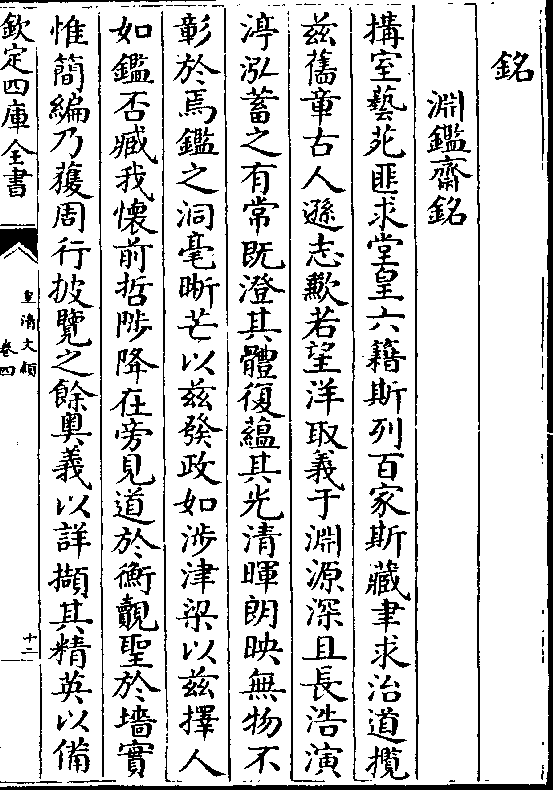 銘
淵鑑齋銘
搆室藝苑匪求堂皇六籍斯列百家斯藏聿求治道攬
兹舊章古人遜志歉若望洋取義于淵源深且長浩演
渟泓蓄之有常既澄其體復蘊其光清暉朗映無物不
彰於焉鑑之洞毫晰芒以兹發政如涉津梁以兹擇人
如鑑否臧我懷前哲陟降在旁見道於衡覿聖於墻實
惟簡編乃獲周行披覽之餘奥義以詳擷其精英以備
欽定四庫全書
皇清文頴
卷四
十二